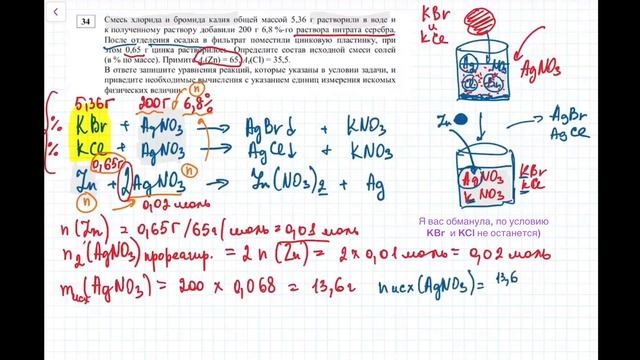 34
Смесь хлорида и бромида калия общей массой 5,36 г растворили в воде и
к полученному раствору добавили 200 г 6,8 %-го раствора нитрата серебра.
После отделения осадка в фильтрат поместили цинковую пластинку, при
этом 0,65 г цинка растворилось. Определите состав исходной смеси солей
(в % по массе). Примите Ar(Zn) = 65, Ar(Cl) = 35,5.
В ответе запишите уравнения реакций, которые указаны в условии задачи, и
приведите необходимые вычисления с указанием единиц измерения искомых
физических величин.
5,36г 200г 6,8%
% KBr + AgNO3 → AgBr↓ + KNO3
% KCl + AgNO3 → AgCl↓ + KNO3
0,65г
Zn + 2AgNO3 → Zn(NO3)2 + Ag
n n
0,02 моль
n(Zn) = 0,65г/65г/моль = 0,01 моль
n2(AgNO3) прореагир. = 2n(Zn) = 2×0,01 моль = 0,02 моль
mисх(AgNO3) = 200 × 0,068 = 13,6г nисх(AgNO3) = 13,6
KBr
и
KCl
AgNO3
Zn
AgBr
AgCl
AgNO3
KNO3
KBr
KCl
Я вас обманула, по условию
KBr и KCl не останется)